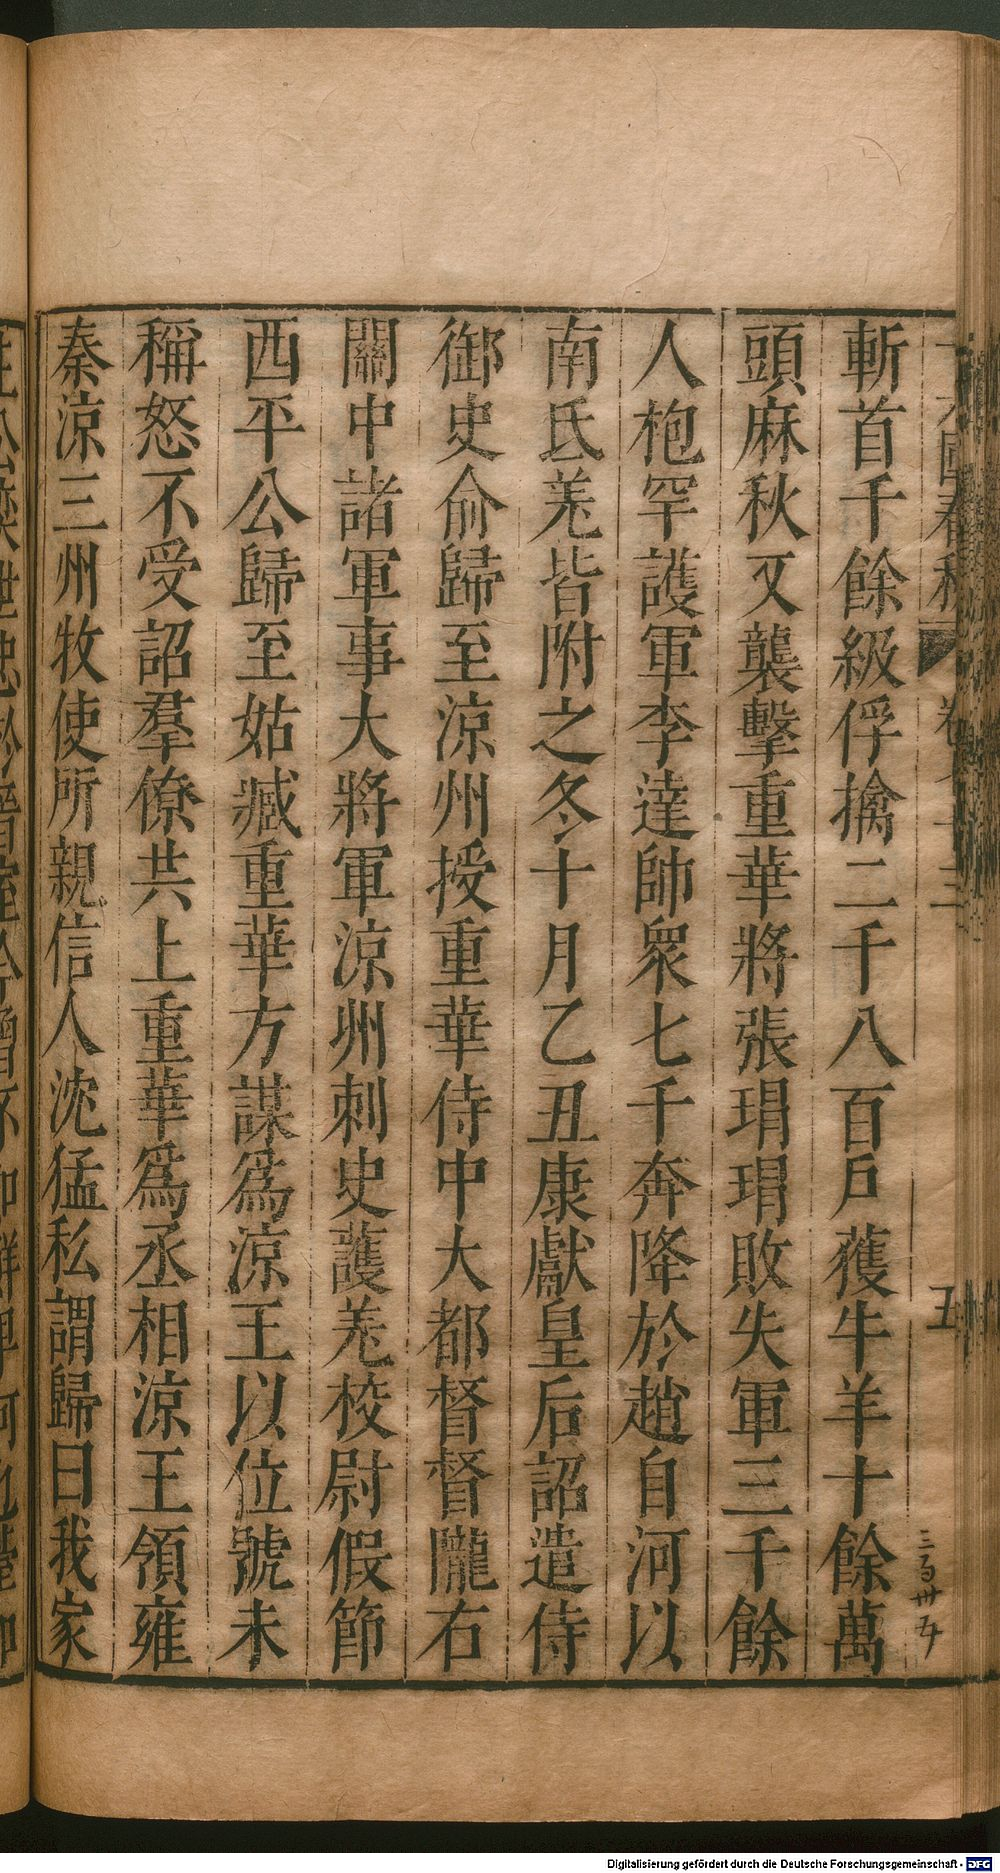 斬首千餘級俘擒二千八百戶獲牛羊十餘萬
頭麻秋又襲擊重華將張瑁瑁敗失軍三千餘
人枹罕護軍李逵帥衆七千奔降於趙自河以
南氐羌皆附之冬十月乙丑康獻皇后詔遣侍
御史俞歸至涼州授重華侍中大都督督隴右
關中諸軍事大將軍涼州刺史護羌校尉假節
西平公歸至姑臧重華方謀爲涼王以位號未
稱怒不受詔羣僚共上重華爲丞相涼王領雍
秦涼三州牧使所親信人沈猛私謂歸曰我家
五
三百卅五
Digitalisierung gefördert durch die Deutsche Forschungsgemeinschaft - DFG